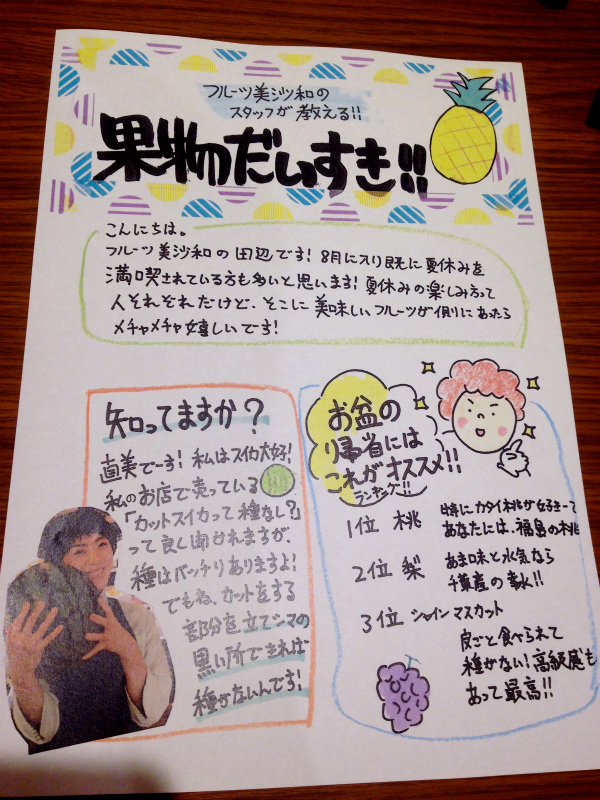 フルーツ美沙和の
スタッフが教える!!
果物だいすき!!
こんにちは。
フルーツ美沙和の田辺です!8月に入り既に夏休みを
満喫されている方も多いと思います!夏休みの楽しみ方って
人それぞれだけど、そこに美味しいフルーツが側にあったら
メチャメチャ嬉しいです!
知ってますか?
直美でーす!私はスイカ大好!
私のお店で売っている
「カットスイカって種なし?」
って良く聞かれますが、
種はバッチリありますよ!
でもね、カットをする
部分を立てジマの
黒い所できれば
種がないんです!
お盆の
帰省には
これがオススメ!!
ランキング!!
1位 桃
特にカタイ桃が好きーって
あなたには、福島の桃
2位 梨
あま味と水気なら
千葉産の幸水!!
3位 シャインマスカット
皮ごと食べられて
種がない!高級感も
あって最高!!